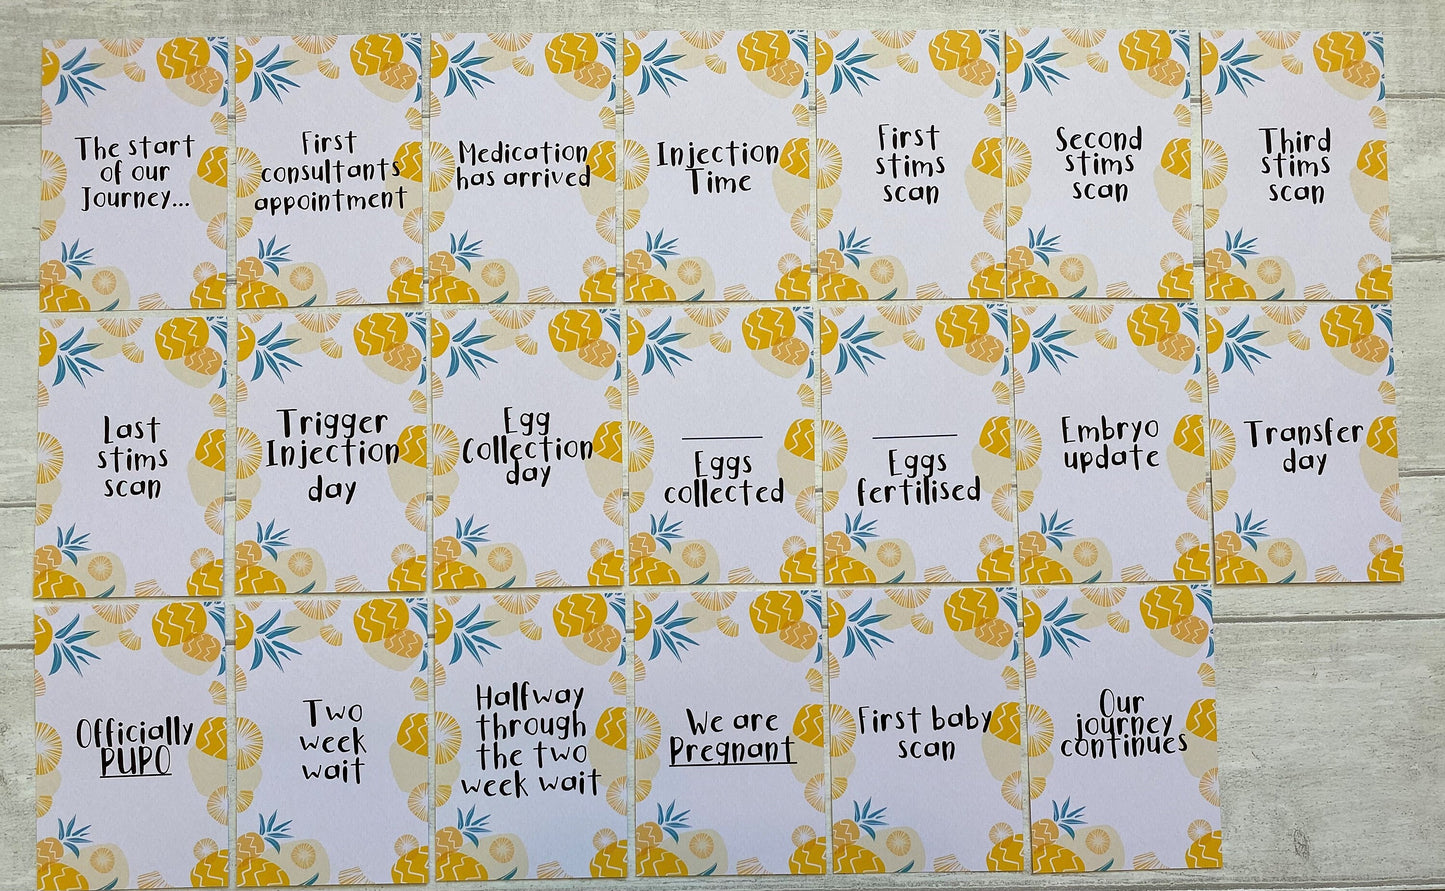 The start
of our
Journey...
First
consultants
appointment
Medication
has arrived
Injection
Time
First
stims
scan
Second
stims
scan
Third
stims
scan
Last
stims
scan
Trigger
Injection
day
Egg
Collection
day
Eggs
collected
Eggs
fertilised
Embryo
update
Transfer
day
Officially
PUPO
Two
week
wait
Halfway
through
the two
week wait
We are
Pregnant
First baby
scan
Our
journey
continues